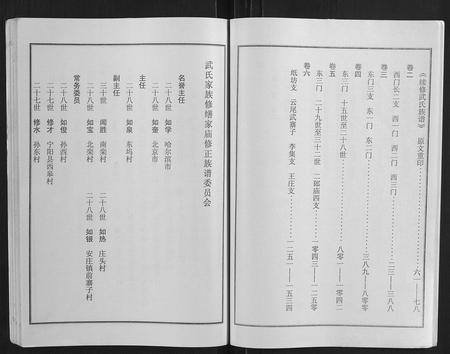 卷二
《续修武氏族谱》 原文重印……六一——七八
卷三
西门长二支 西一门 西二门 西三门……二三——三八八
卷四
东门三支 东一门 东二门……三八九——八零零
卷五
东三门 十五世至二十八世……八零一——一零四二
卷六
东三门 二十九世至三十二世 二郎庙四支……一零四三——一二五零
纸坊支 云尾武寨子 李集支 王庄支……一二五一——一五三四
武氏家族修缮家庙修正族谱委员会
名誉主任
二十八世 如学 哈尔滨市
二十八世 如奎 北京市
主任
二十八世 如泉 东坞村
副主任
三十世 闻胜 南栾村 二十八世 如热 庄头村
二十八世 如宝 北栾村 二十八世 如银 安庄镇前寨子村
常务委员
二十八世 如俊 孙西村
二十七世 修才 宁阳县西皋村
二十七世 修水 孙东村